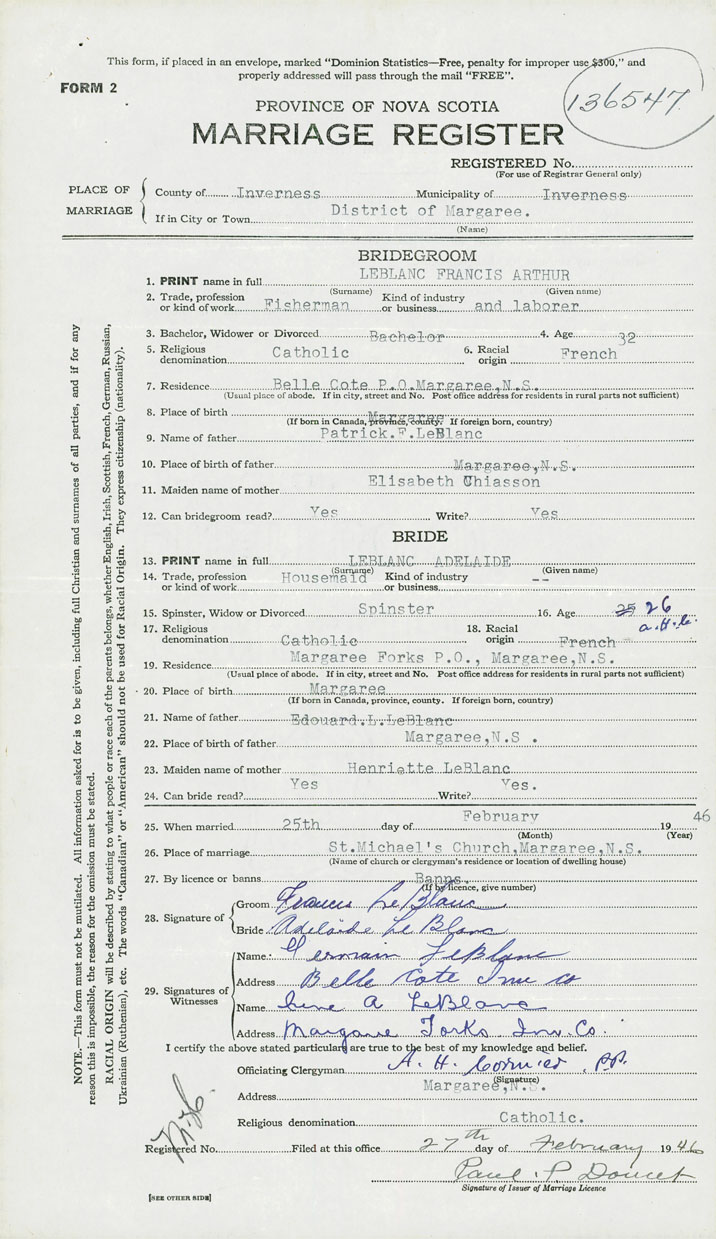 This form, if placed in an envelope, marked "Dominion Statistics—Free, penalty for improper use $300," and
properly addressed will pass through the mail "FREE".
FORM 2
136547
PROVINCE OF NOVA SCOTIA
MARRIAGE REGISTER
REGISTERED No.
(For use of Registrar General only)
PLACE OF MARRIAGE
County of Inverness Municipality of Inverness
If in City or Town District of Margaree.
(Name)
BRIDEGROOM
1. PRINT name in full LEBLANC FRANCIS ARTHUR
(Surname) (Given name)
2. Trade, profession or kind of work Fisherman Kind of industry or business and laborer
3. Bachelor, Widower or Divorced Bachelor 4. Age 32
5. Religious denomination Catholic 6. Racial origin French
7. Residence Belle Cote P.O.Margaree,N.S.
(Usual place of abode. If in city, street and No. Post office address for residents in rural parts not sufficient)
8. Place of birth Margaree
(If born in Canada, province, county. If foreign born, country)
9. Name of father Patrick.F.LeBlanc
10. Place of birth of father Margaree,N.S.
11. Maiden name of mother Elisabeth Chiasson
12. Can bridegroom read? Yes Write? Yes
BRIDE
13. PRINT name in full LEBLANC ADELAIDE
(Surname) (Given name)
14. Trade, profession or kind of work Housemaid Kind of industry or business --
15. Spinster, Widow or Divorced Spinster 16. Age 25 26
a.H.C.
17. Religious denomination Catholic 18. Racial origin French
19. Residence Margaree Forks P.O., Margaree,N.S.
(Usual place of abode. If in city, street and No. Post office address for residents in rural parts not sufficient)
20. Place of birth Margaree
(If born in Canada, province, county. If foreign born, country)
21. Name of father Edouard.L.LeBlanc
22. Place of birth of father Margaree,N.S .
23. Maiden name of mother Henriette LeBlanc
24. Can bride read? Yes Write? Yes.
25. When married 25th day of February 1946
(Month) (Year)
26. Place of marriage St.Michael's Church,Margaree,N.S.
(Name of church or clergyman's residence or location of dwelling house)
27. By licence or banns Banns.
(If by licence, give number)
28. Signature of
Groom Francis LeBlanc
Bride Adelaide LeBlanc
29. Signatures of Witnesses
Name Germain LeBlanc
Address Belle Cote Inv co
Name A LeBlanc
Address Margaree Forks Inv. Co.
I certify the above stated particulars are true to the best of my knowledge and belief.
Officiating Clergyman A. H. Cormier, P.P.
(Signature)
Address Margaree,N.S.
Religious denomination Catholic.
Registered No. Filed at this office 27th day of February 1946
Paul P. Doucet
Signature of Issuer of Marriage Licence
[SEE OTHER SIDE]
NOTE.—This form must not be mutilated. All information asked for is to be given, including full Christian and surnames of all parties, and if for any
reason this is impossible, the reason for the omission must be stated.
RACIAL ORIGIN will be described by stating to what people or race each of the parents belongs, whether English, Irish, Scottish, French, German, Russian,
Ukrainian (Ruthenian), etc. The words "Canadian" or "American" should not be used for Racial Origin. They express citizenship (nationality).